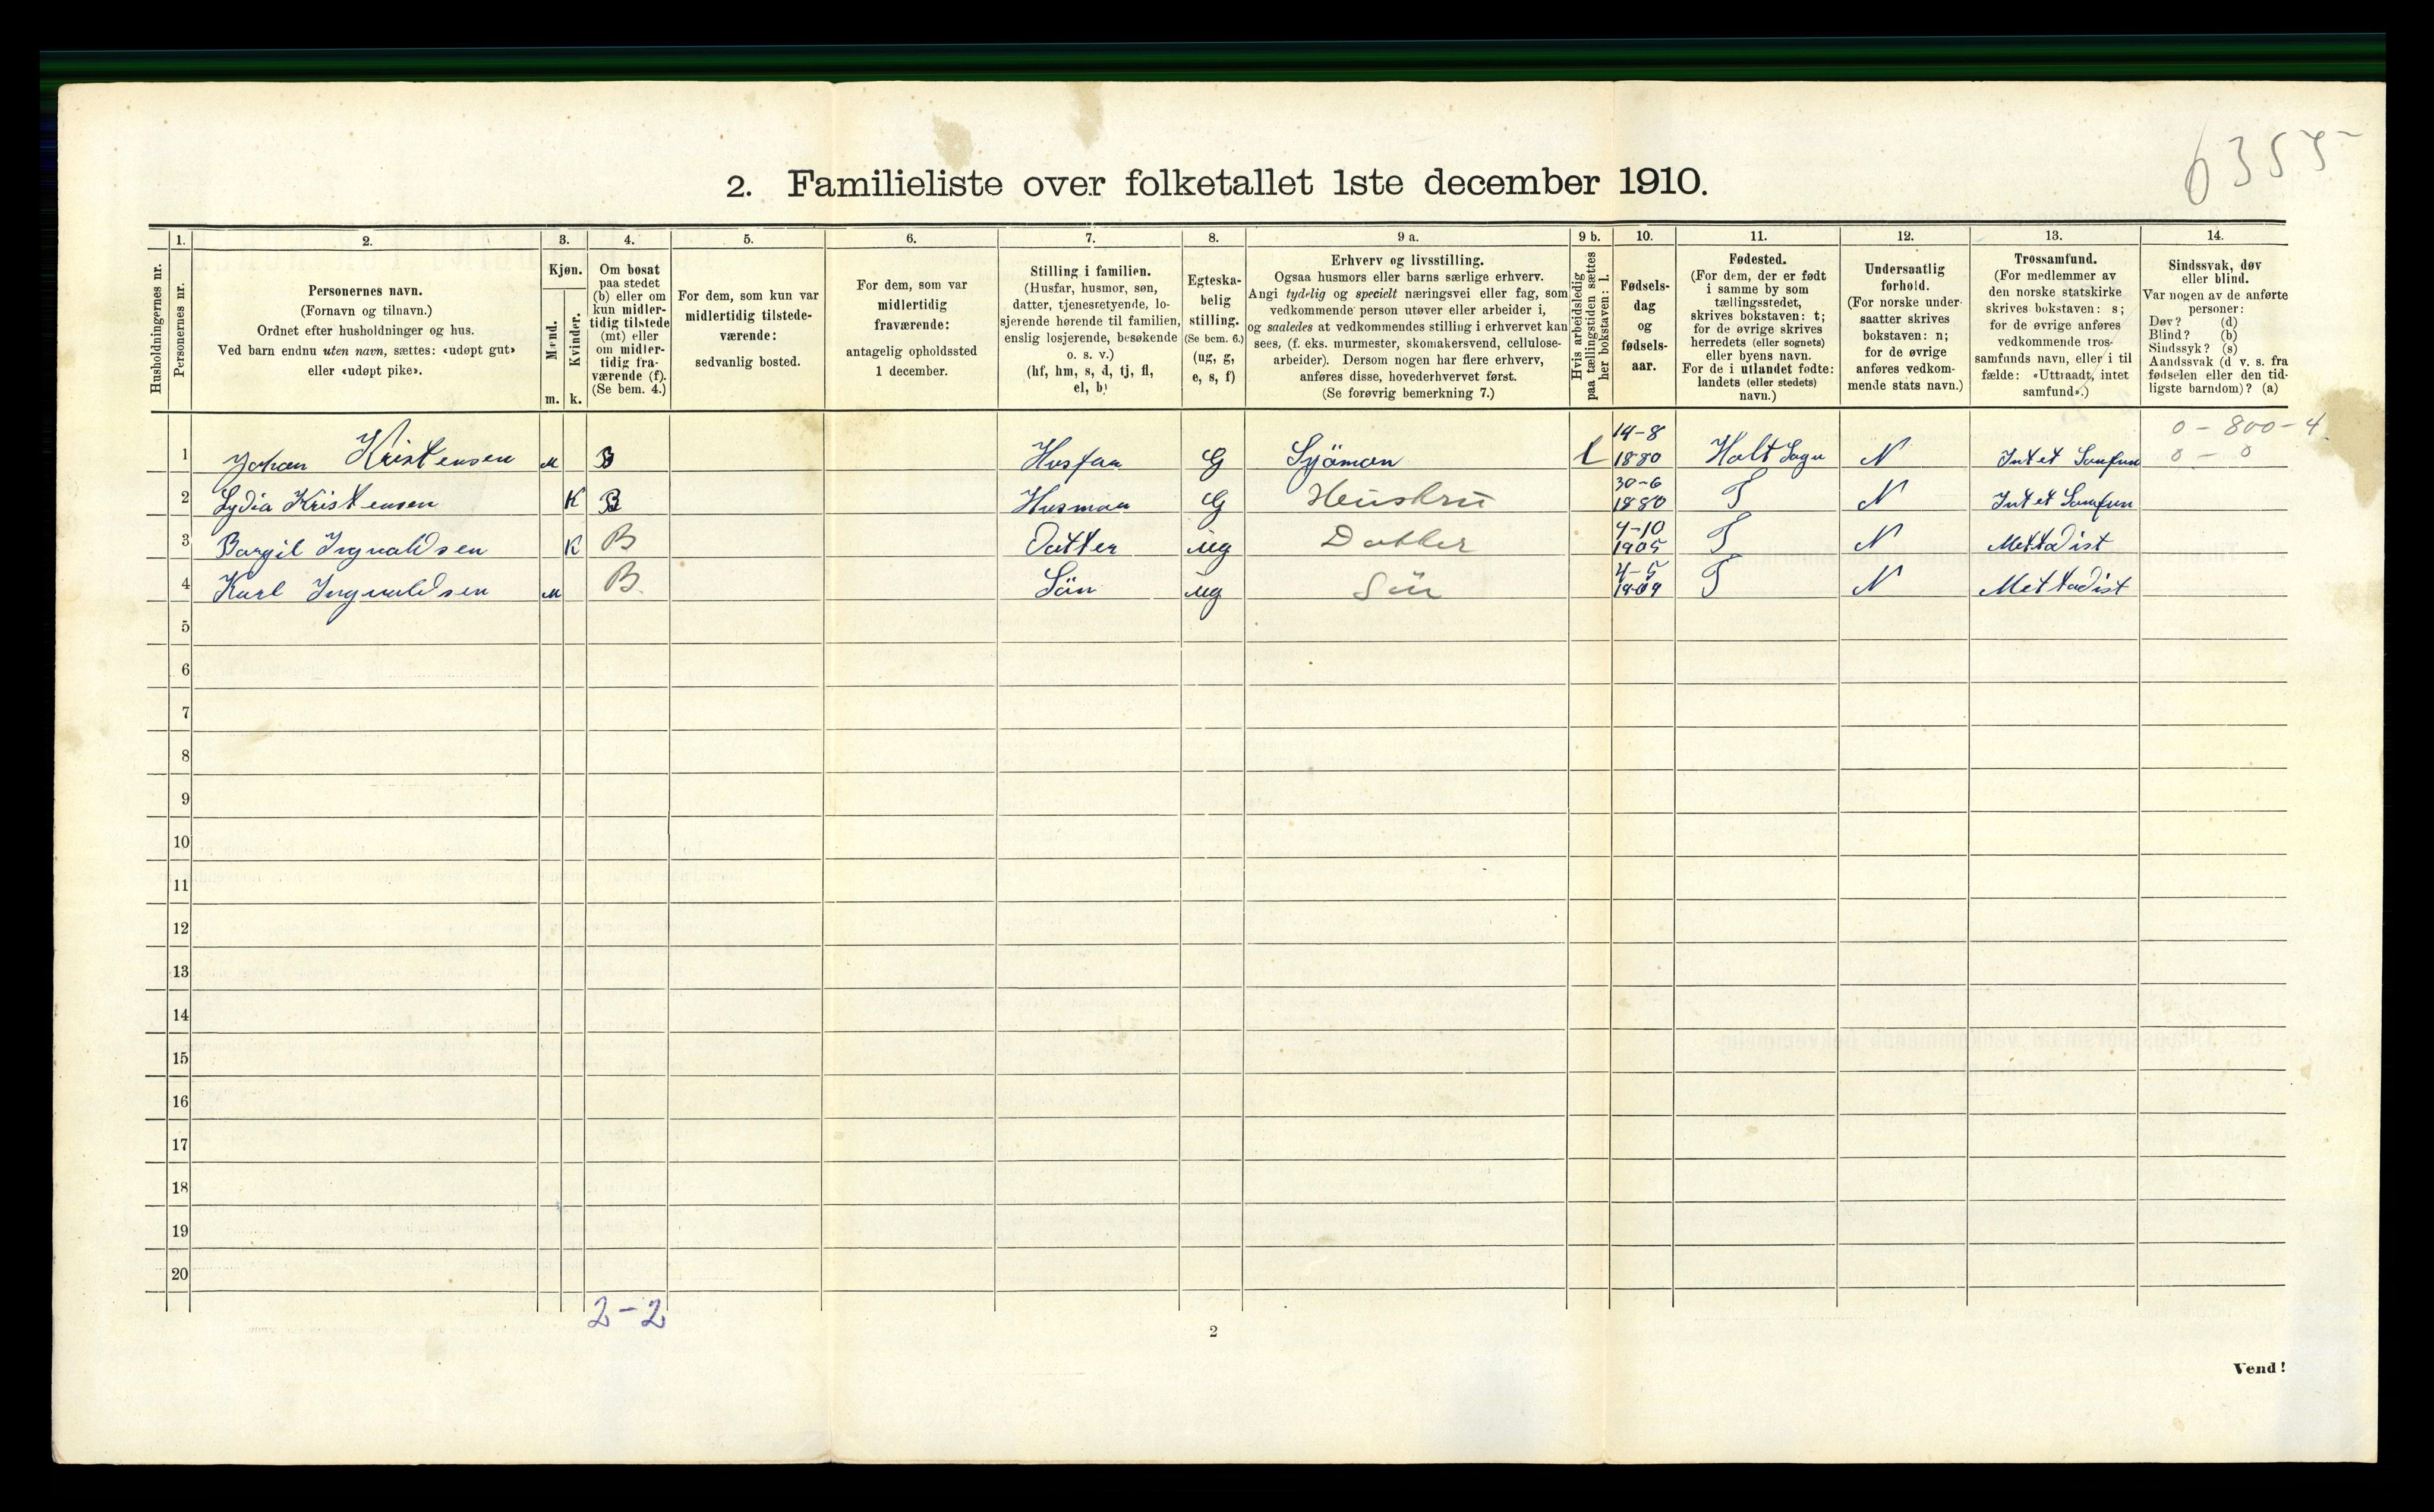 6355-
2. Familieliste over folketallet 1ste december 1910.
1. 2. 3. 4. 5. 6. 7. 8. 9 a. 9 b. 10. 11. 12. 13. 14.
Husholdningernes nr.
Personernes nr.
Personernes navn.
(Fornavn og tilnavn.)
Ordnet efter husholdninger og hus.
Ved barn endnu uten navn, sættes: «udøpt gut»
eller «udøpt pike».
Kjøn.
Mænd.
Kvinder.
m. k.
Om bosat
paa stedet
(b) eller om
kun midler-
tidig tilstede
(mt) eller
om midler-
tidig fra-
værende (f).
(Se bem. 4.)
For dem, som kun var
midlertidig tilstede-
værende:
sedvanlig bosted.
For dem, som var
midlertidig
fraværende:
antagelig opholdssted
1 december.
Stilling i familien.
(Husfar, husmor, søn,
datter, tjenestetyende, lo-
sjerende hørende til familien,
enslig losjerende, besøkende
o. s. v.)
(hf, hm, s, d, tj, fl,
el, b)
Egteska-
belig
stilling.
(Se bem. 6.)
(ug, g,
e, s, f)
Erhverv og livsstilling.
Ogsaa husmors eller barns særlige erhverv.
Angi tydelig og specielt næringsvei eller fag, som
vedkommende person utøver eller arbeider i,
og saaledes at vedkommendes stilling i erhvervet kan
sees, (f. eks. murmester, skomakersvend, cellulose-
arbeider). Dersom nogen har flere erhverv,
anføres disse, hovederhvervet først.
(Se forøvrig bemerkning 7.)
Hvis arbeidsledig
paa tællingstiden sættes
her bokstaven: l.
Fødsels-
dag
og
fødsels-
aar.
Fødested.
(For dem, der er født
i samme by som
tællingsstedet,
skrives bokstaven: t;
for de øvrige skrives
herredets (eller sognets)
eller byens navn.
For de i utlandet fødte:
landets (eller stedets)
navn.)
Undersaatlig
forhold.
(For norske under-
saatter skrives
bokstaven: n;
for de øvrige
anføres vedkom-
mende stats navn.)
Trossamfund.
(For medlemmer av
den norske statskirke
skrives bokstaven: s;
for de øvrige anføres
vedkommende tros-
samfunds navn, eller i til
fælde: «Uttraadt, intet
samfund».)
Sindssvak, døv
eller blind.
Var nogen av de anførte
personer:
Døv? (d)
Blind? (b)
Sindssyk? (s)
Aandssvak (d v. s. fra
fødselen eller den tid-
ligste barndom)? (a)
0 - 800 - 4
0 - 0
1 Johan Kristensen M B Husfaa G Sjöman l 14-8 1880 Holt Sogn N Intet Samfun
2 Lydia Kristensen K B Husmoa G Hüustru 30-6 1880 T N Intet Samfun
3 Borgil Ingvaldsen K B Datter ug Datter 4-10 1905 T N Mettadist
4 Karl Ingvaldsen M B. Sön ug Sön 4-5 1909 T N Mettadist
5
6
7
8
9
10
11
12
13
14
15
16
17
18
19
20
2-2
2
Vend!